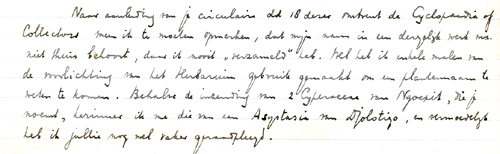 Naar aanleiding van je circulaire dd 18 dezer omtrent de Cyclopaedia of
Collectors meen ik te moeten opmerken, dat mijn naam in een dergelijk werk m.i.
niet thuis behoort, daar ik nooit „verzameld" heb. Wel heb ik enkele malen van
de voorlichting van het Herbarium gebruik gemaakt om een plantennaam te
weten te komen. Behalve de inzending van 2 Cyperaceae van Ngoepit, die je
noemt, herinner ik me die van een Asystasia van Djolotigo, en vermoedelijk
heb ik jullie nog wel vaker geraadpleegd.